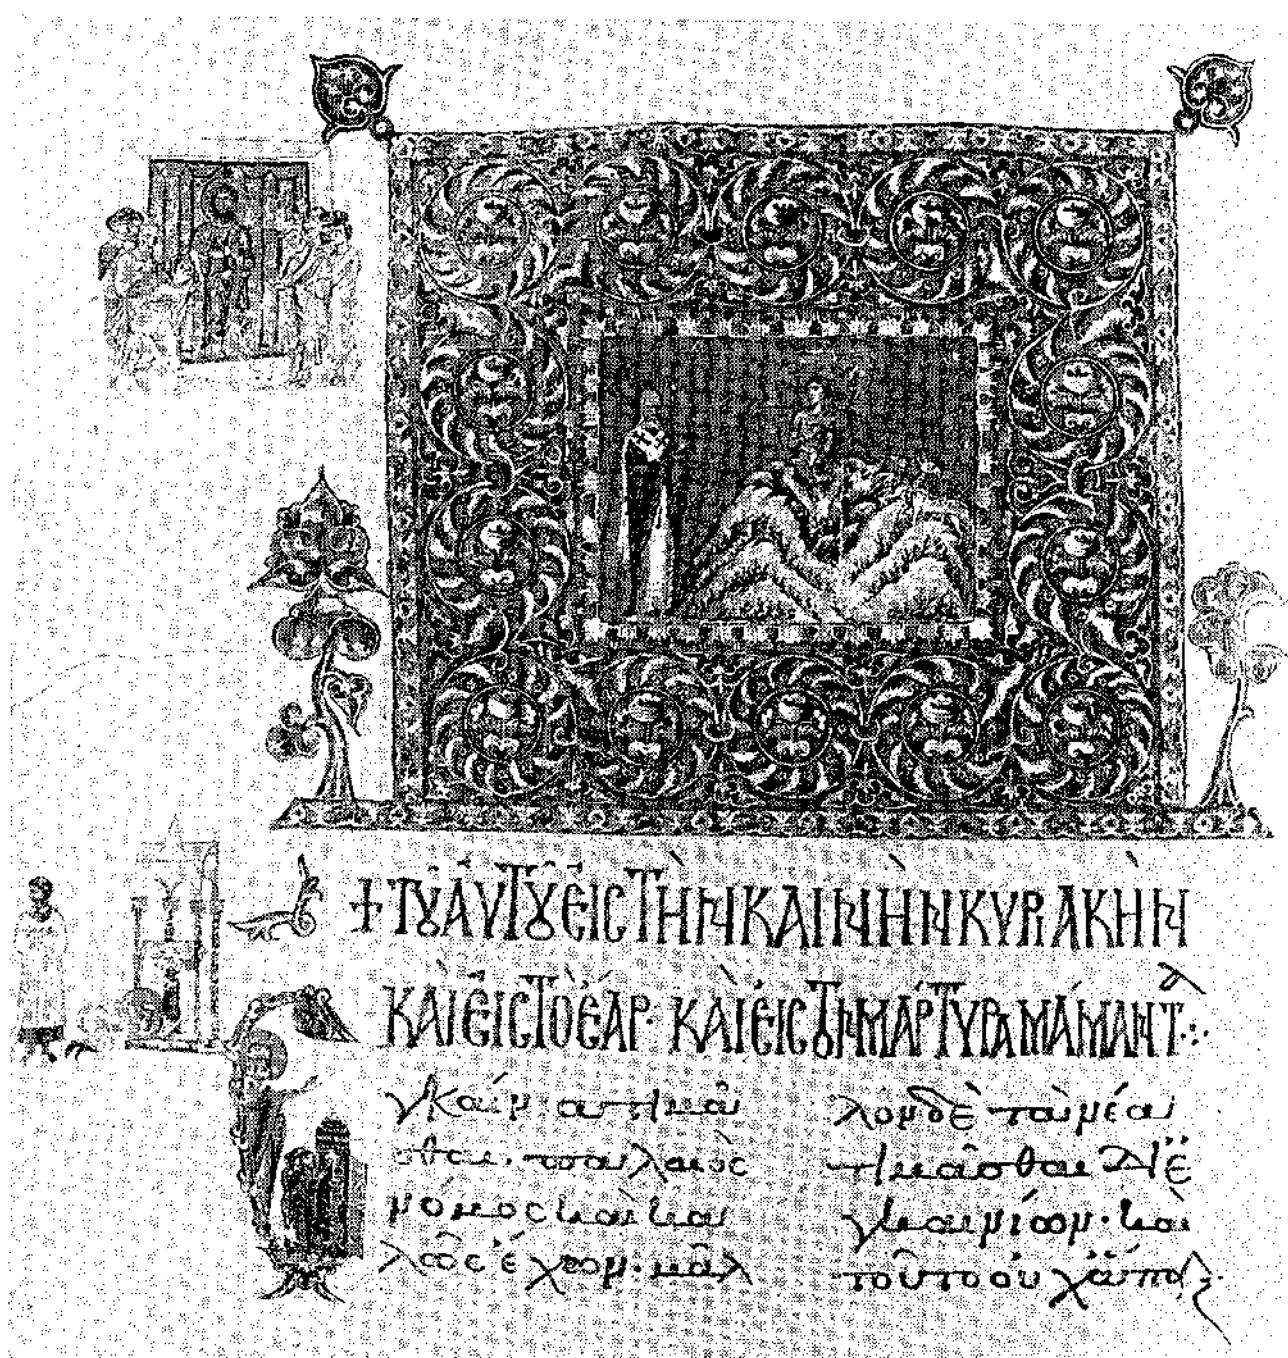 + ΤȢ ΑΥΤȢ ΕἸΣ ΤῊΝ ΚΑΙΝῊΝ ΚΥΡΙΑΚῊΝ
ΚΑῚ ΕἸΣ ΤῸ ἜΑΡ· ΚΑῚ ΕἸΣ ΤῸΝ ΜΆΡΤΥΡΑ ΜΆΜΑΝΤ
γκαίνια τιμᾶ
σθαι· παλαιὸς
νόμος καὶ κα
λῶς ἔχων· μᾶλ
λον δὲ τὰ νέα
τιμᾶσθαι δι' ἐ
γκαινίων· καὶ
τοῦτο οὐχ ἅπαξ